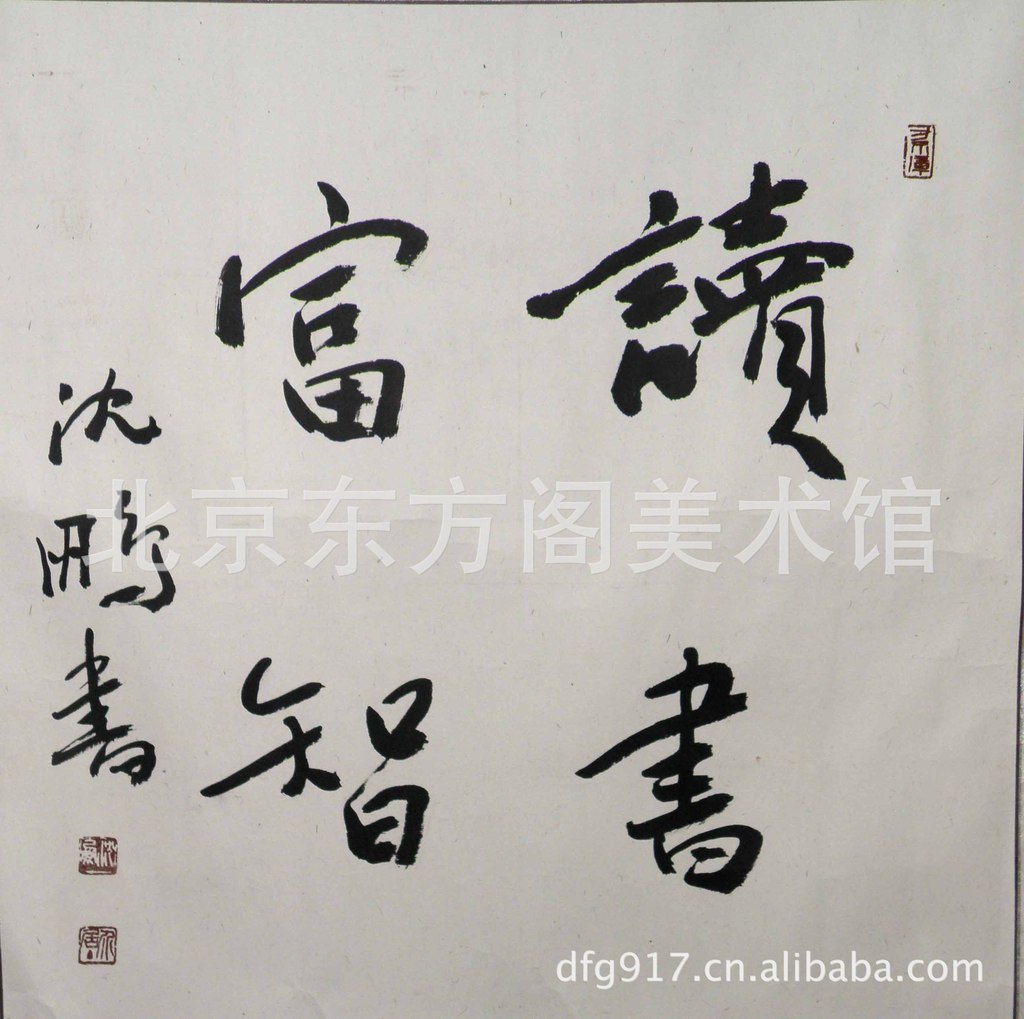 讀書
富智
沈鵬書
北京东方阁美术馆
dfg917.cn.alibaba.com